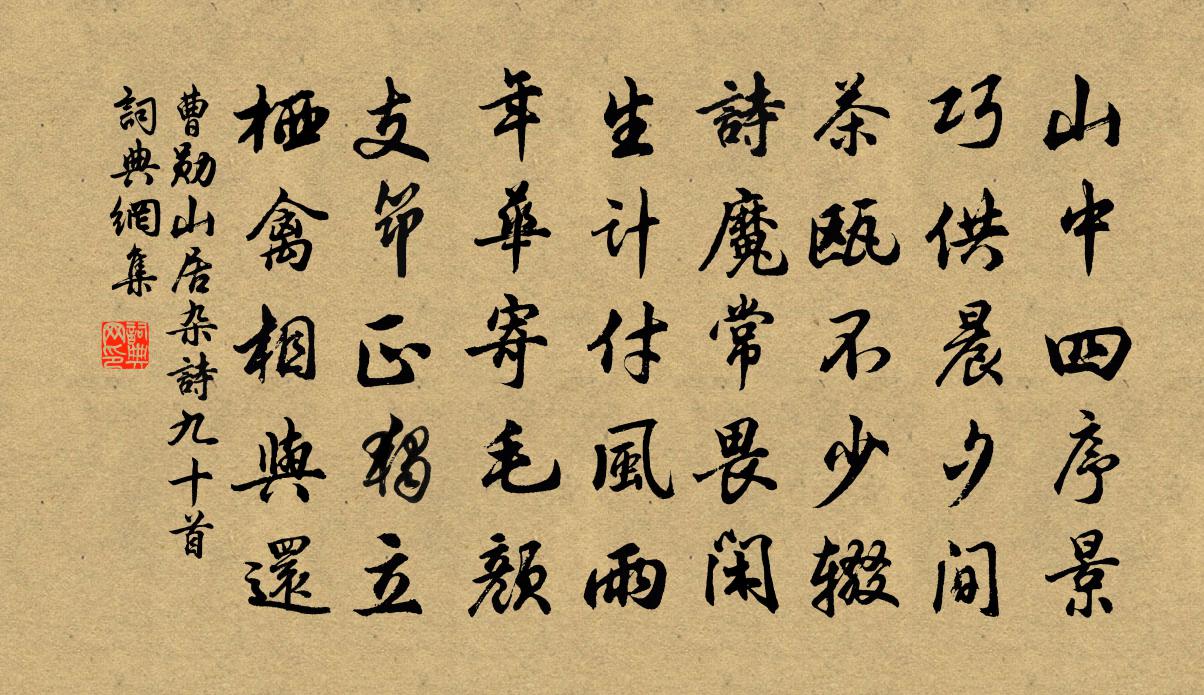 山中四序景
巧供晨夕间
茶瓯不少辍
詩魔常畏闲
生计付風雨
年華寄毛顔
支笻正獨立
栖禽相與還
曹勋山居杂詩九十首
詞典網集
詞典网印